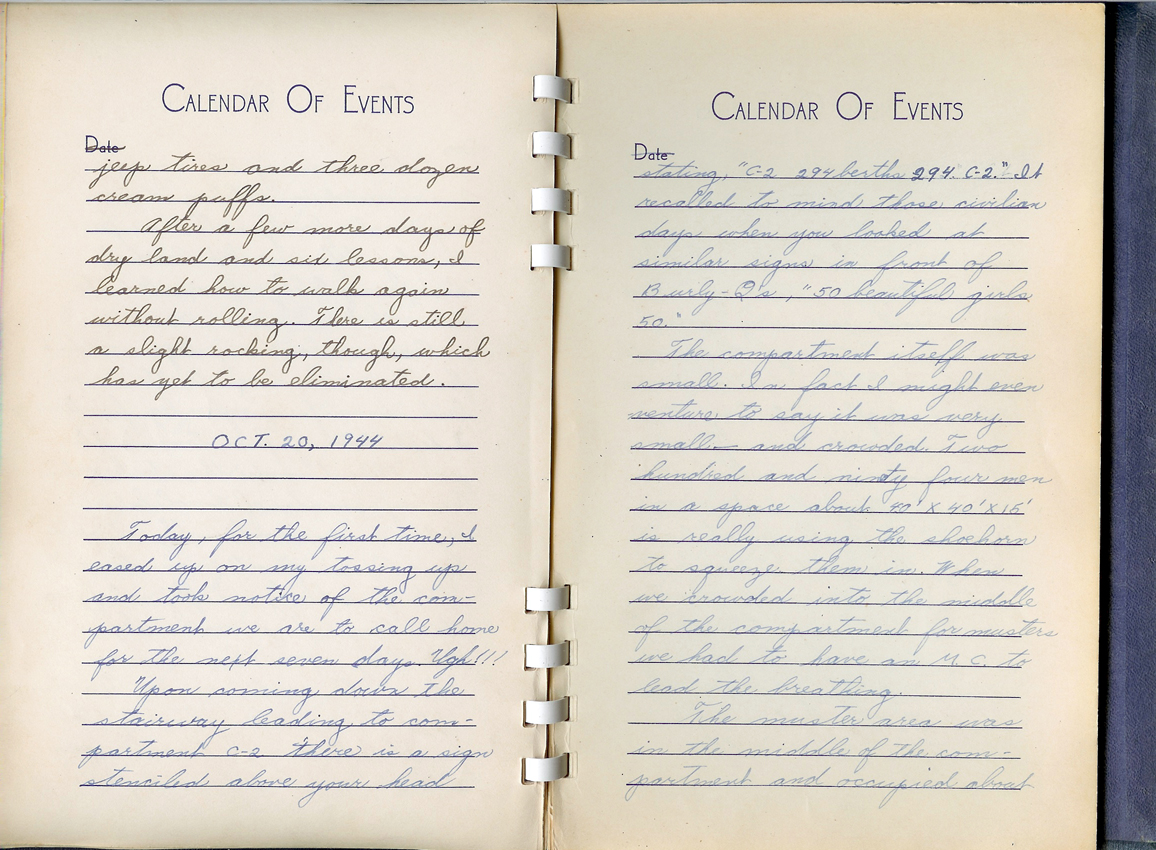 CALENDAR OF EVENTS
Date
jeep tires and three dozen
cream puffs.
After a few more days of
dry land and six lessons, I
learned how to walk again
without rolling. There is still
a slight rocking, though, which
has yet to be eliminated.
OCT. 20, 1944
Today, for the first time, I
eased up on my tossing up
and took notice of the com-
partment we are to call home
for the next seven days. Ugh!!!
Upon coming down the
stairway leading to com-
partment C-2 there is a sign
stenciled above your head
CALENDAR OF EVENTS
Date
stating, "C-2 294 berths 294. C-2." It
recalled to mind those civilian
days when you looked at
similar signs in front of
Burly-Q's, "50 beautiful girls
50."
The compartment itself was
small. In fact I might even
venture to say it was very
small — and crowded. Two
hundred and ninety four men
in a space about 40' X 40' X 15'
is really using the shoehorn
to squeeze them in. When
we crowded into the middle
of the compartment for musters
we had to have an M.C. to
lead the breathing.
The muster area was
in the middle of the com-
partment and occupied about